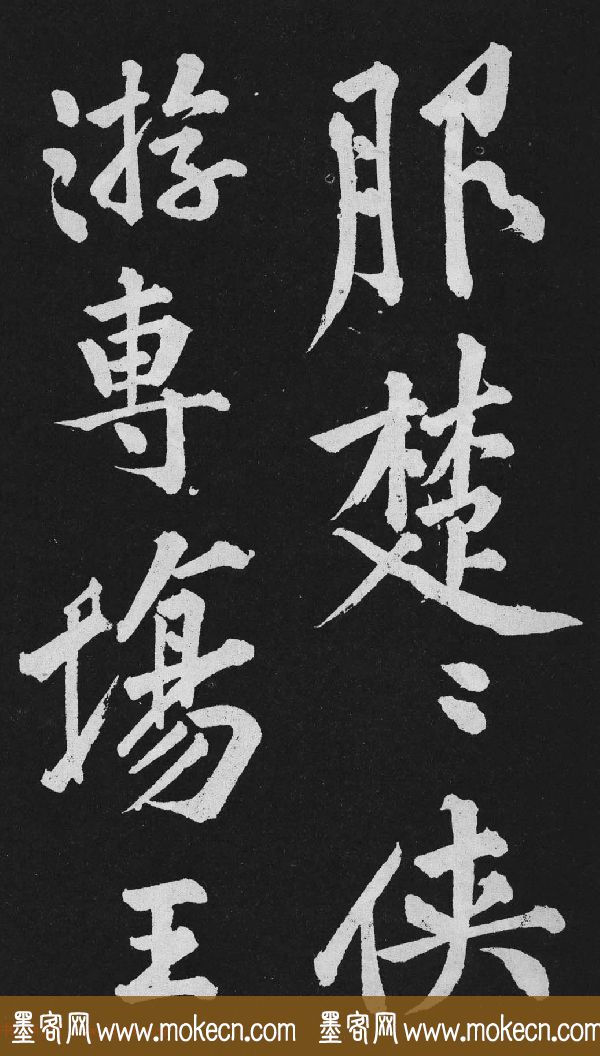 服楚〻俠
游專場王
墨客网 www.mokecn.com 墨客网 www.mokecn.com